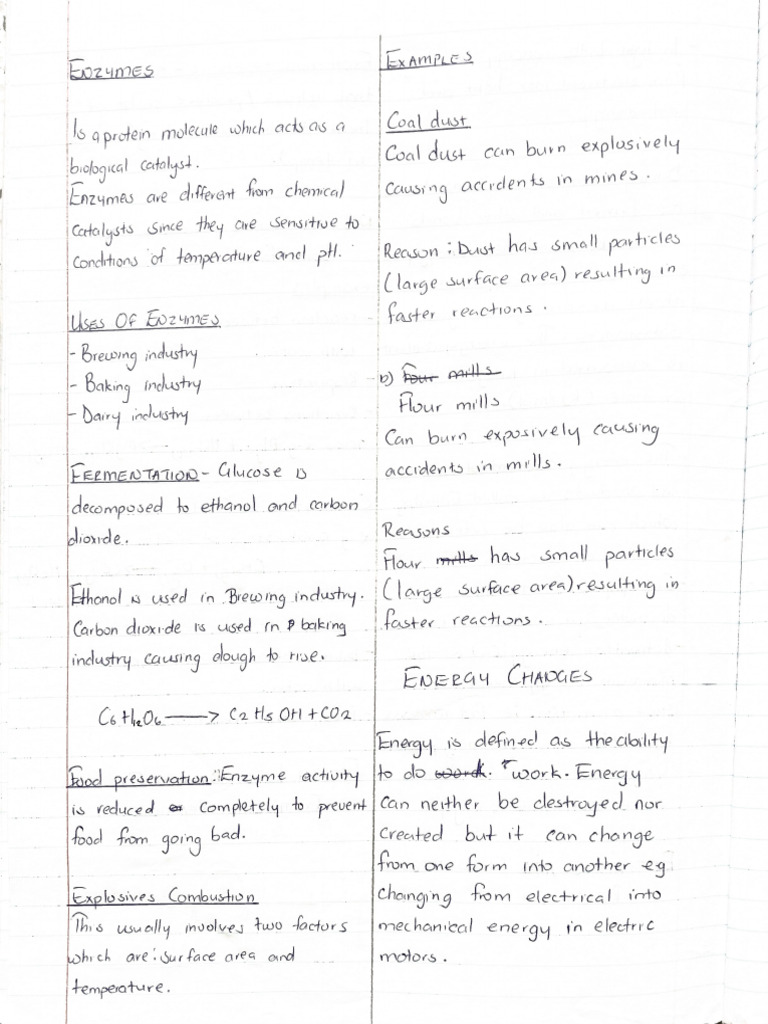 ENZYMES
Is a protein molecule which acts as a
biological catalyst.
Enzymes are different from chemical
catalysts since they are sensitive to
conditions of temperature and pH.
USES OF ENZYMES
- Brewing industry
- Baking industry
- Dairy industry
FERMENTATION - Glucose is
decomposed to ethanol and carbon
dioxide.
Ethanol is used in Brewing industry.
Carbon dioxide is used in baking
industry causing dough to rise.
C6H12O6 → C2H5OH + CO2
Food preservation: Enzyme activity
is reduced or completely to prevent
food from going bad.
Explosives Combustion
This usually involves two factors
which are: surface area and
temperature.
EXAMPLES
Coal dust
Coal dust can burn explosively
causing accidents in mines.
Reason: Dust has small particles
(large surface area) resulting in
faster reactions.
b) Four mills
Flour mills
Can burn exposively causing
accidents in mills.
Reasons
Flour mills has small particles
(large surface area) resulting in
faster reactions.
ENERGY CHANGES
Energy is defined as the ability
to do work. work. Energy
can neither be destroyed nor
created but it can change
from one form into another eg
changing from electrical into
mechanical energy in electric
motors.